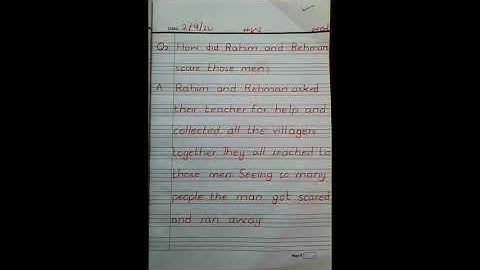 Date 2/9/20 H.W
Q2 How did Rahim and Rehman
scare those men?
A Rahim and Rehman asked
their teacher for help and
collected all the villagers
together. They all reached to
those men. Seeing so many
people the man got scared
and ran away
Page #